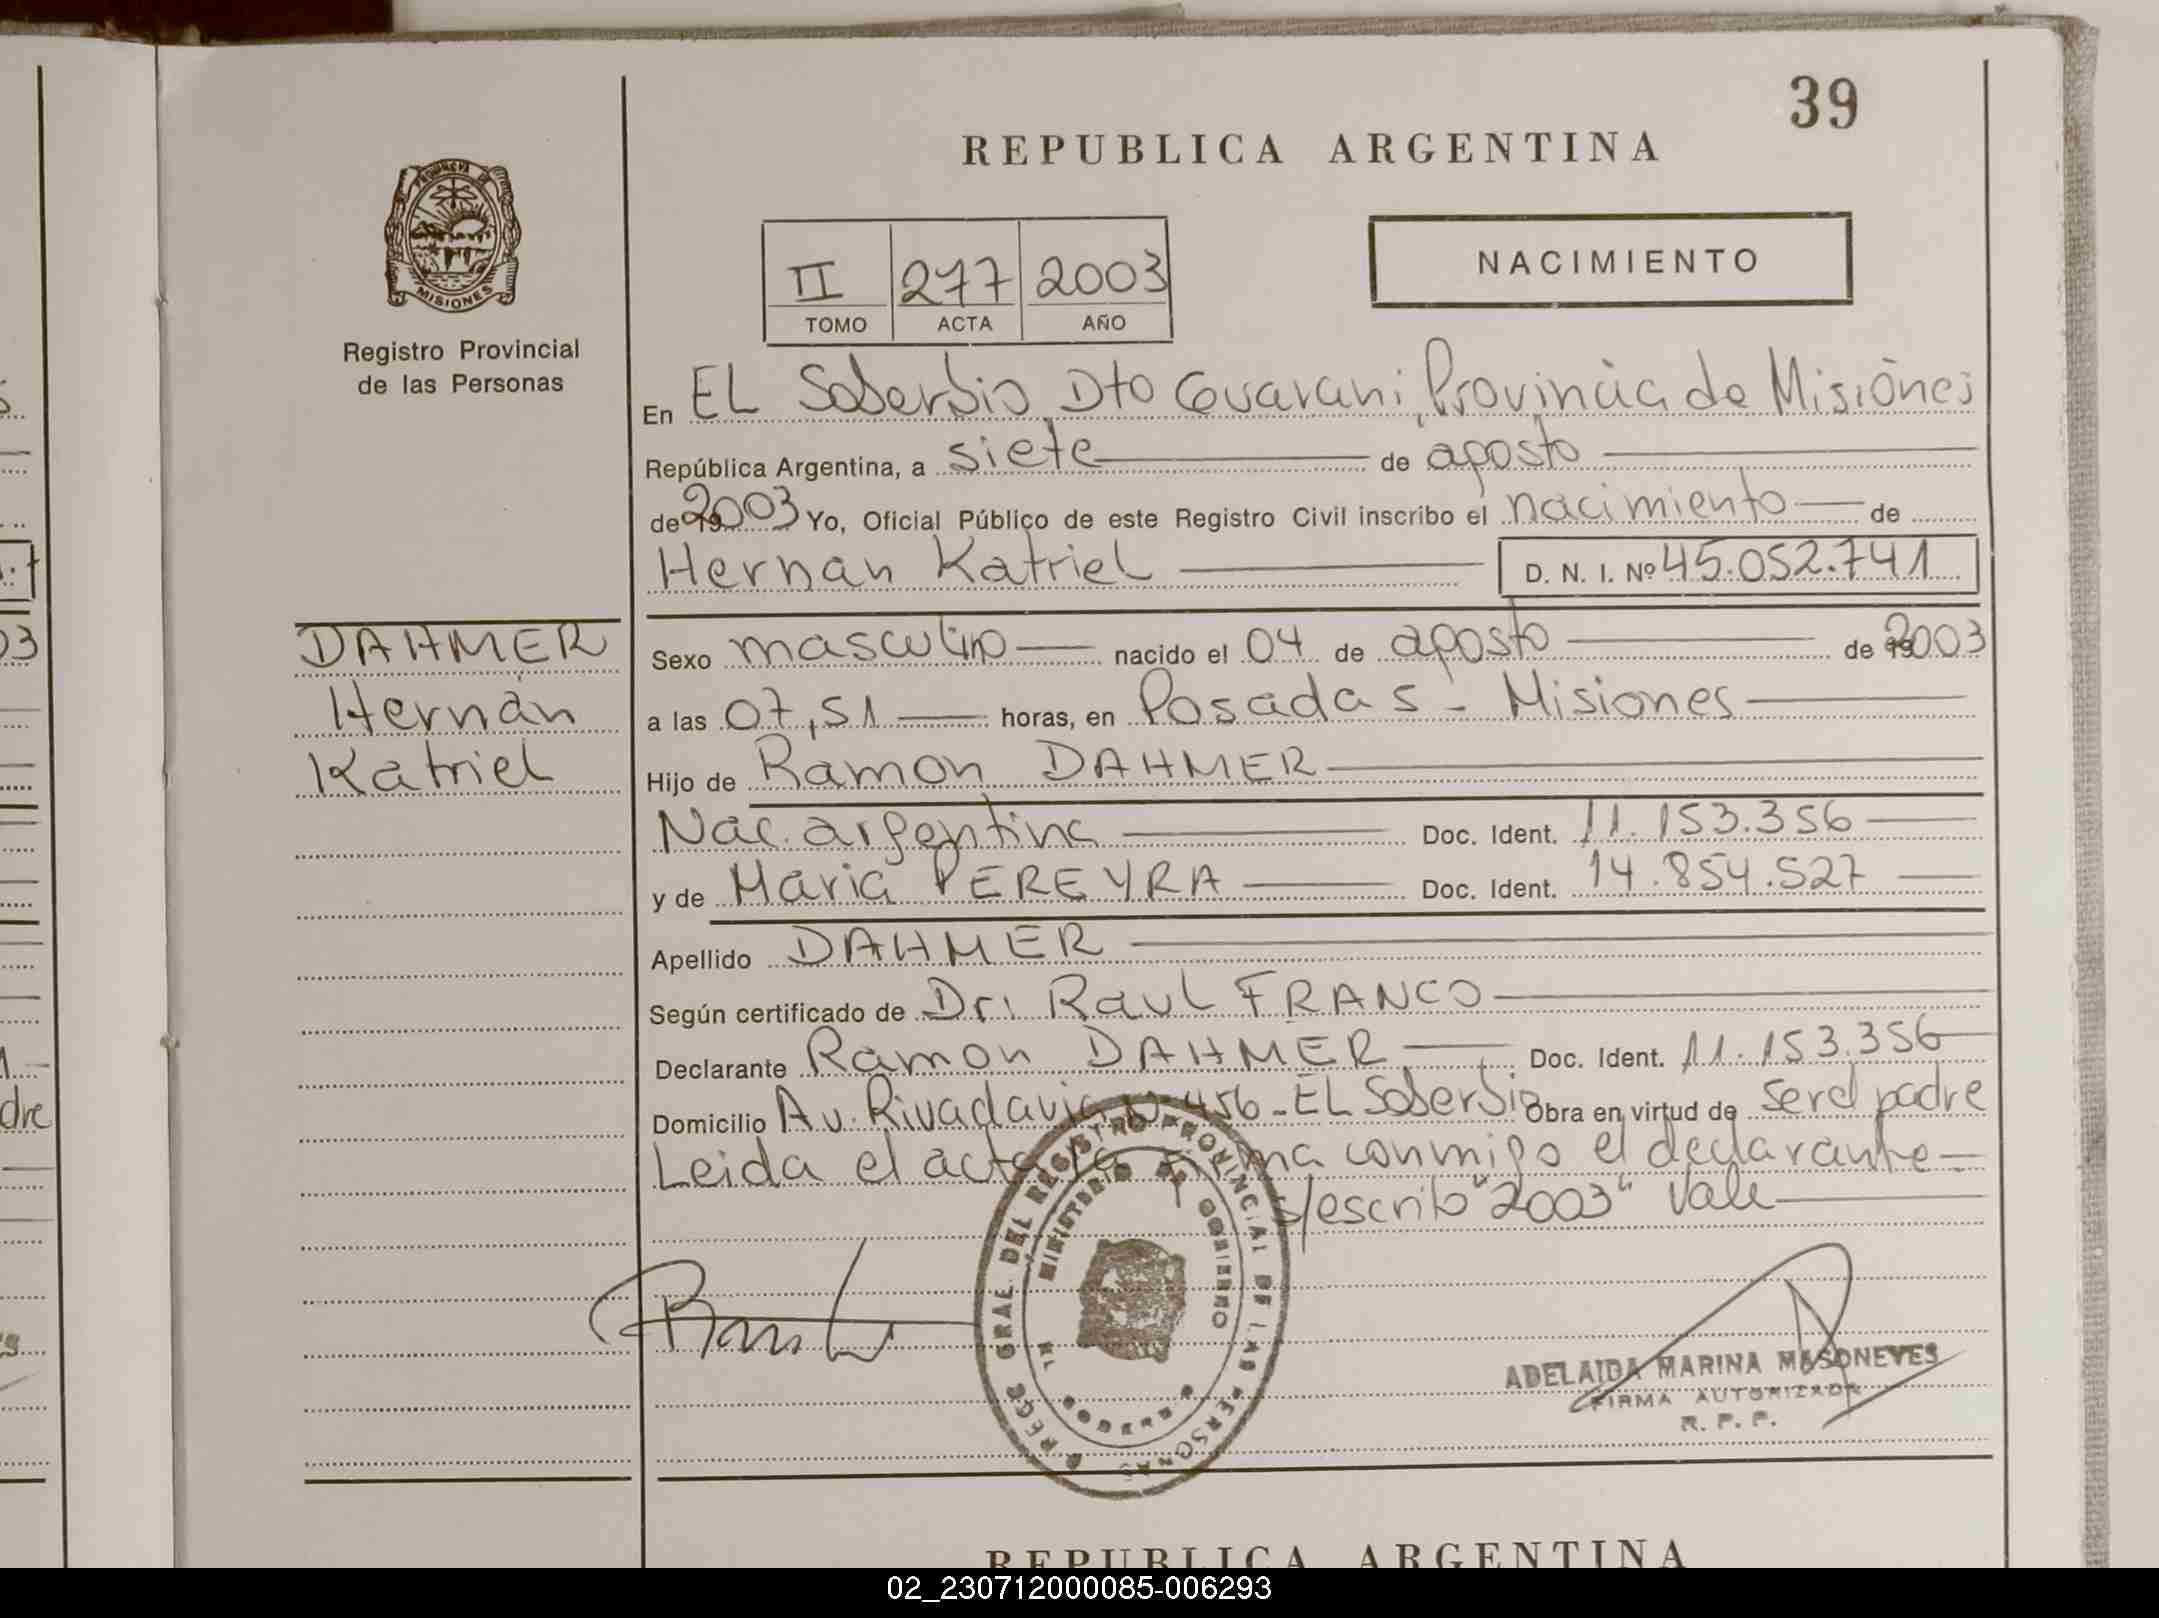 39
REPUBLICA ARGENTINA
PROVINCIA DE
MISIONES
Registro Provincial
de las Personas
II 277 2003
TOMO ACTA AÑO
NACIMIENTO
En EL Soberbio, Dto Guarani, Provincia de Misiones
República Argentina, a siete de agosto
de 2003 Yo, Oficial Público de este Registro Civil inscribo el nacimiento de
Hernan Katriel D. N. I. Nº 45.052.741
DAHMER
Hernán
Katriel
Sexo masculino nacido el 04 de agosto de 2003
a las 07,51 horas, en Posadas - Misiones
Hijo de Ramon DAHMER
Nac. argentina Doc. Ident. 11.153.356
y de Maria PEREYRA Doc. Ident. 14.854.527
Apellido DAHMER
Según certificado de Dr. Raul FRANCO
Declarante Ramon DAHMER Doc. Ident. 11.153.356
Domicilio Av. Rivadavia Nº 456 - EL Soberbio Obra en virtud de ser el padre
Leida el acta la firma conmigo el declarante
s/escrito "2003" Vale
GRAL. DEL REGISTRO PROVINCIAL DE LAS PERSONAS
MINISTERIO DE GOBIERNO
ADELAIDA MARINA MASONEVES
FIRMA AUTORIZADA
R. P. P.
REPUBLICA ARGENTINA
03
dre
02_230712000085-006293